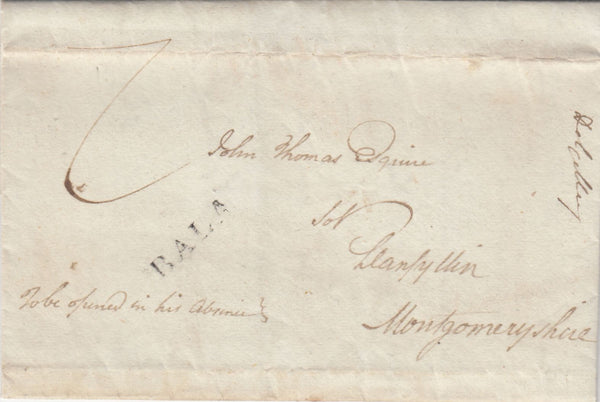 7
John Thomas Esquire
Solr
BALA
Llanfyllin
To be opened in his Absence
Montgomeryshire